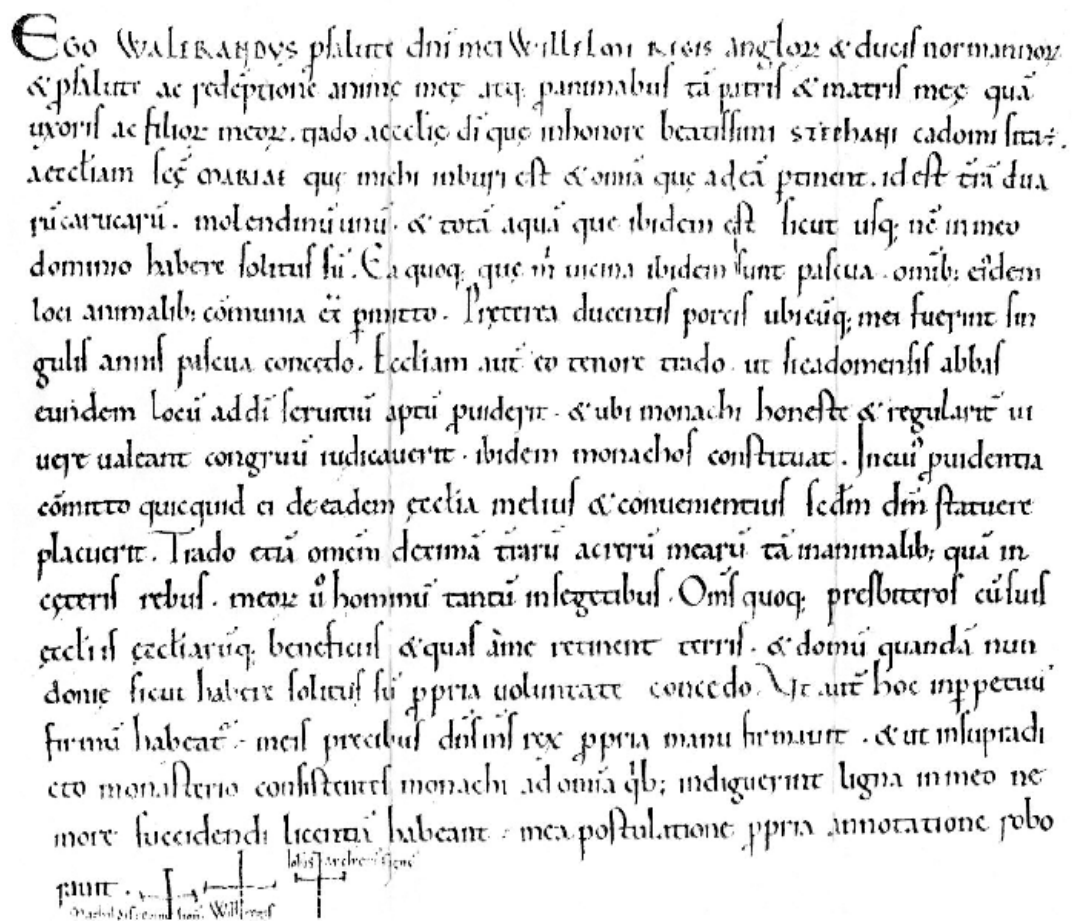 EGO WALERANDVS p salute dni mei Willelmi REGIS anglor & ducis normannor
& p salute ac redēptione animę meę atq; p animabus tā patris & matris meę quā
uxoris ac filior meor. trado aecclię di quę in honore beatissimi STEPHANI cadomi sita ÷.
aeccl̄iam scę MARIAE quę michi in buri est & om̄ia quę ad eā ptinent. id est t̄rā dua
rū carucarū. molendinū unū. & totā aquā quę ibidem est sicut usq; nc̄ in meo
dominio habere solitus sū. Ea quoq; quę m̄ uicina ibidem sunt pascua. omib; eiᵈdem
loci animalib; cōmunia eē pmitto. Pręterea ducentis porcis ubicūq; mei fuerint sin
gulis annis pascua concedo. Eccl̄iam aut̄ eo tenore trado. ut si cadomensis abbas
eundem locū ad dī seruitiū aptū puiderit. & ubi monachi honeste & regularit̄ ui
uere ualeant congruū iudicauerit. ibidem monachos constituat. In cuiꝰ puidentia
cōmitto quicquid ei de eadem ęccl̄ia melius & conuenientius scdm dm̄ statuere
placuerit. Trado etiā omem decimā t̄rarū acrerū mearū tā in animalib; quā in
cęteris rebus. meor ů hominū tantū in segetibus. Om̄s quoq; presbiteros cū suis
ęccl̄iis ęccl̄iarūq; beneficiis & quas a me retinent terris. & domū quandā nun
donię sicut habere solitus sū ppria uoluntate concedo. Vt aut̄ hoc in ppetuū
firmū habeat̄. meis precibus dn̄s m̄s rex ppria manu firmauit. & ut in supradi
cto monasterio consistentes monachi ad om̄ia qib; indiguerint ligna in meo ne
more succidendi licentiā habeant. mea postulatione ppria annotatione robo
rauit.